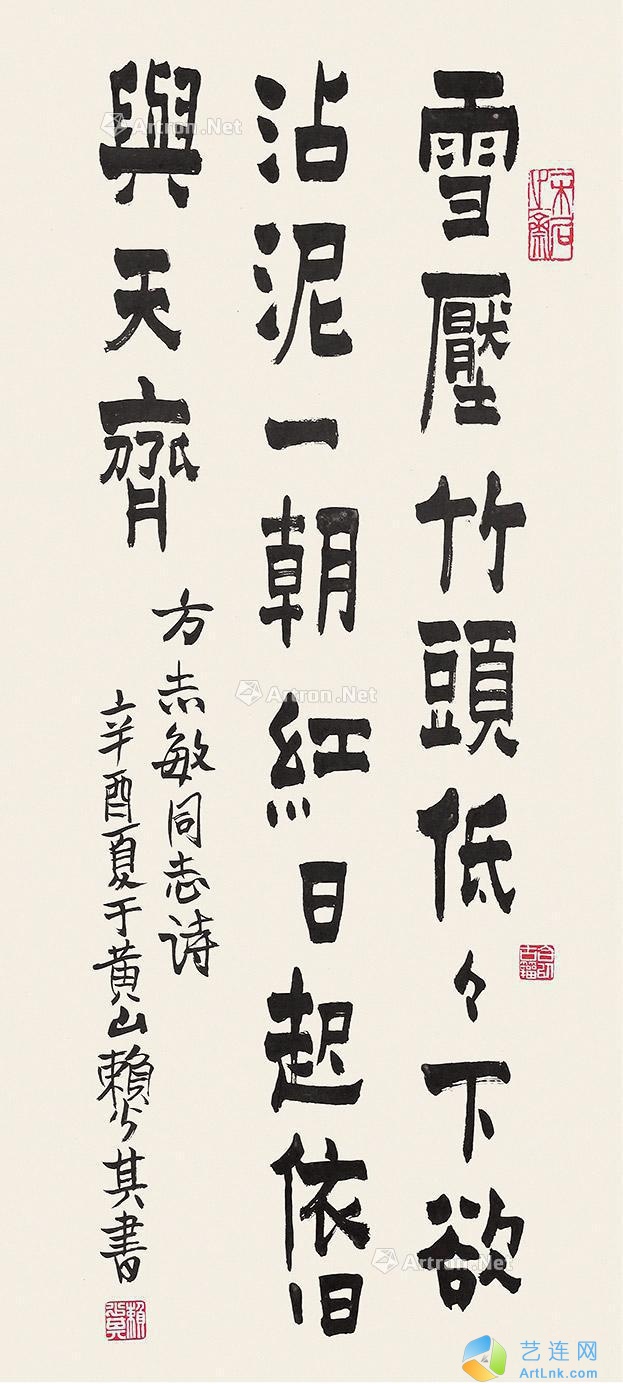 雪壓竹頭低々下欲
沾泥一朝紅日起依旧
與天齊
方志敏同志诗
辛酉夏于黄山賴少其書
Artron.Net
Artron.Net
Artron.Net
艺连网
ArtLnk.com